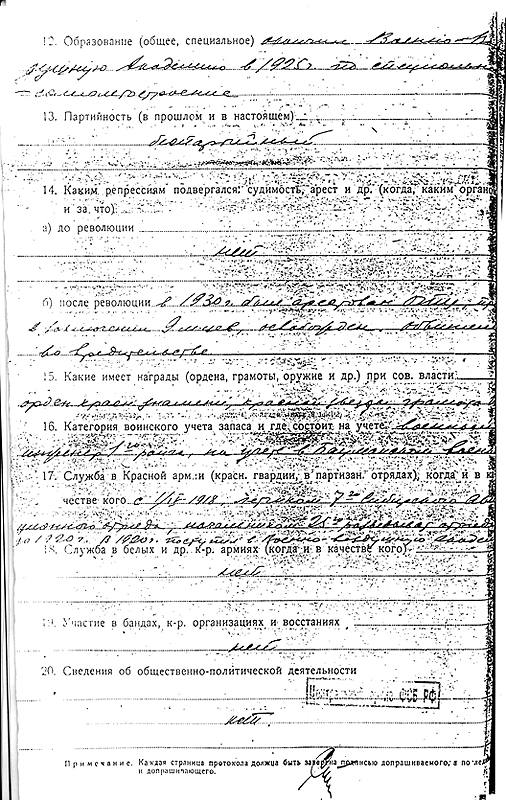 12. Образование (общее, специальное) окончил Военно-
душную Академию в 1925г. по специальн
-самолетостроение
13. Партийность (в прошлом и в настоящем)
беспартийный
14. Каким репрессиям подвергался: судимость, арест и др. (когда, каким орган
и за что)
а) до революции
нет
б) после революции в 1930г. был арестован ОГПУ,
в заключении 9 месяцев, освобожден, обвинен
во вредительстве
15. Какие имеет награды (ордена, грамоты, оружие и др.) при сов. власти
орден красн. знамени, красной звезды, грамота
16. Категория воинского учета запаса и где состоит на учете военный
инженер 1го ранга, на учете в Бауманском военк
17. Служба в Красной армии (красн. гвардии, в партизан. отрядах), когда и в к
честве кого с 1918, летчиком 7го авиа
ционного отряда, начальником 28го отряда
до 1920г. В 1920г. поступил в Военно-воздушную академ
18. Служба в белых и др. к.-р. армиях (когда и в качестве кого)
нет
19. Участие в бандах, к-р. организациях и восстаниях
нет
20. Сведения об общественно-политической деятельности
Центральный архив ФСБ РФ
нет.
Примечание. Каждая страница протокола должна быть заверена подписью допрашиваемого, а послед
и допрашивающего.